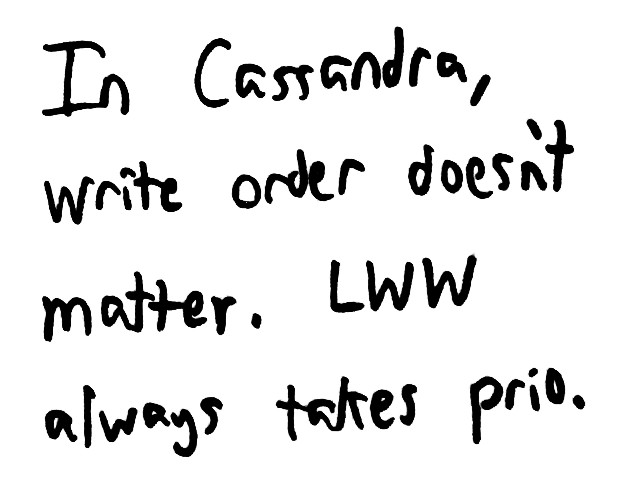 In Cassandra,
write order doesn't
matter. LWW
always takes prio.